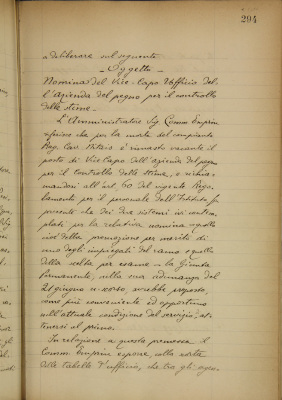 294
a deliberare sul seguente
Oggetto
Nomina del Vice-Capo Ufficio del-
l'Azienda del pegno per il controllo
delle stime.
L'Amministratore Sig. Comm.
riferisce che per la morte del compianto
Rag. Cav. è rimasto vacante il
posto di ViceCapo dell'azienda del pegno
per il controllo delle stime, e richia-
mandosi all'art. 60 del vigente Rego-
lamento per il personale dell'Istituto, fa
presente che dei due sistemi ivi contem-
plati per la relativa nomina
cioè della promozione per merito di
uno degli impiegati del ramo e quello
della scelta per esame - la Giunta
Permanente, nella sua adunanza del
21 giugno u. scorso, avrebbe proposto,
come più conveniente ed opportuno
nell'attuale condizione del servizio, at-
tenersi al primo.
In relazione a questa premessa il
Comm. espone, sulla scorta
delle tabelle d'ufficio, che tra gli